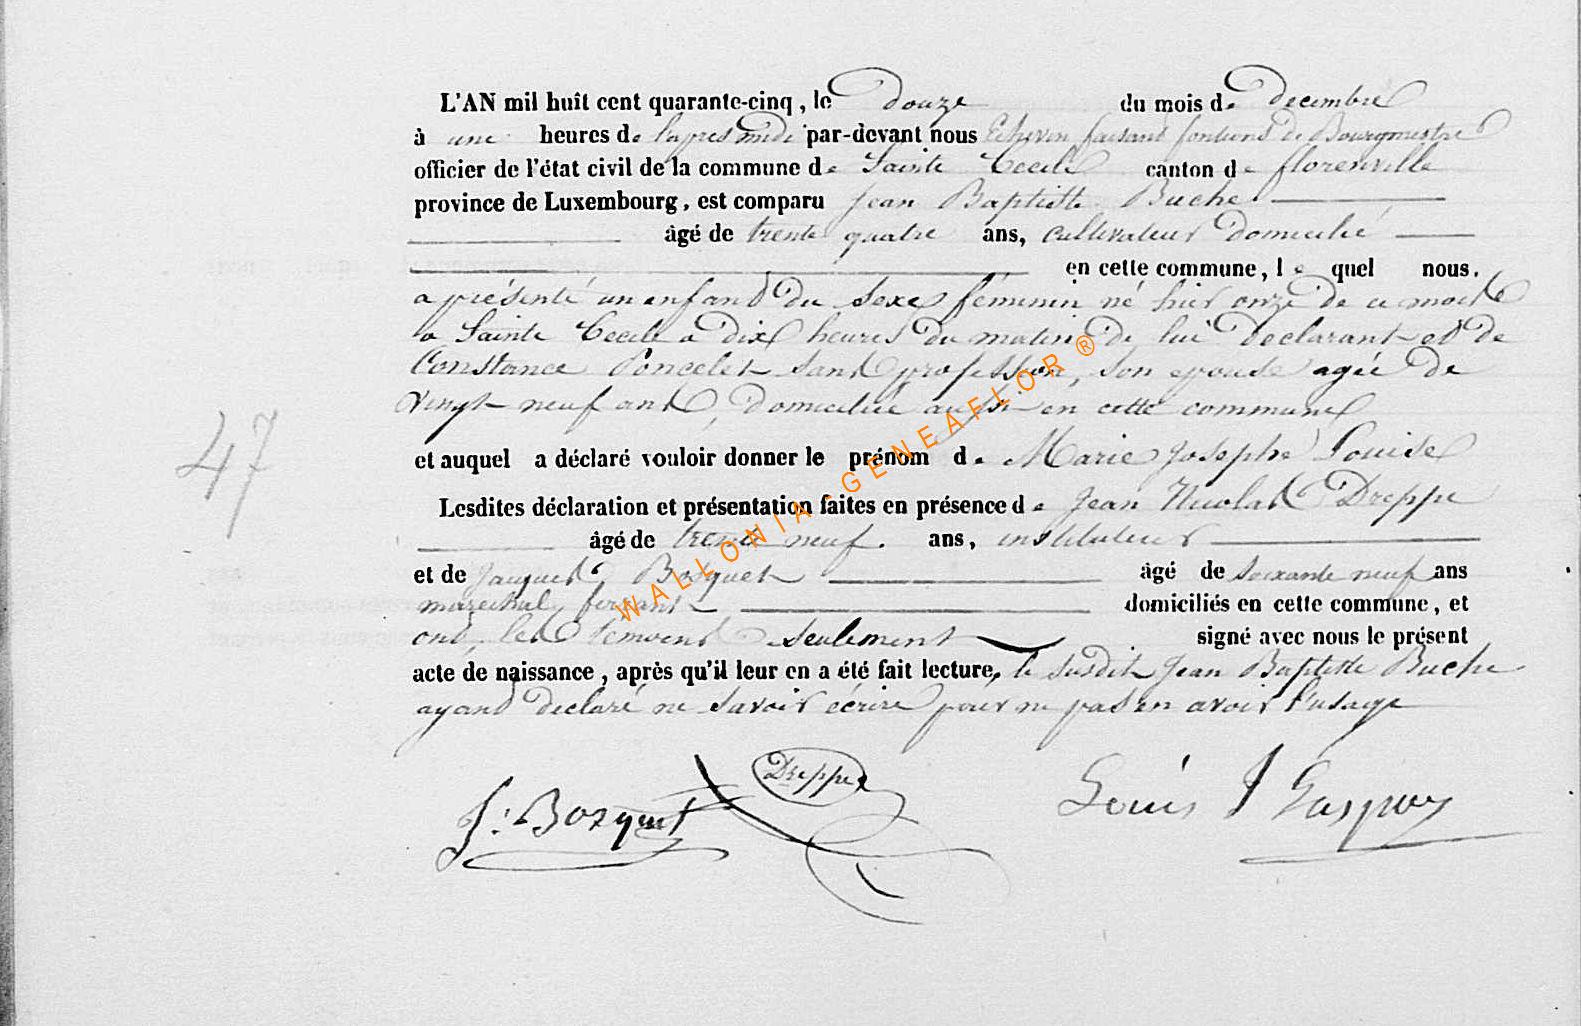 L'AN mil huit cent quarante-cinq, le douze du mois de decembre
à une heures de l'apres midi par-devant nous Echevin faisant fontions de Bourgmestre
officier de l'état civil de la commune de Sainte Cecile canton de florenville
province de Luxembourg, est comparu Jean Baptiste Buche
âgé de trente quatre ans, cultivateur domicilié
en cette commune, le quel nous.
a présenté un enfant du sexe féminin né hier onze de ce mois
a Sainte Cecile a dix heures du matin de lui declarant et de
Constance Poncelet sans profession, son epouse agée de
vingt neuf ans, domiciliée aussi en cette commune
47
et auquel a déclaré vouloir donner le prénom de Marie Josephe Louise
Lesdites déclaration et présentation faites en présence de Jean Nicolas Dreppe
âgé de trente neuf. ans, instituteur
et de Jacques Bosquet âgé de soixante neuf ans
marechal ferrant domiciliés en cette commune, et
ont, les temoins seulement signé avec nous le présent
acte de naissance, après qu'il leur en a été fait lecture, le susdit Jean Baptiste Buche
ayant declaré ne savoir écrire pour ne pas en avoir l'usage
WALLONIA-GENEAFLOR ®
Dreppe
J: Bozquet
Louis J